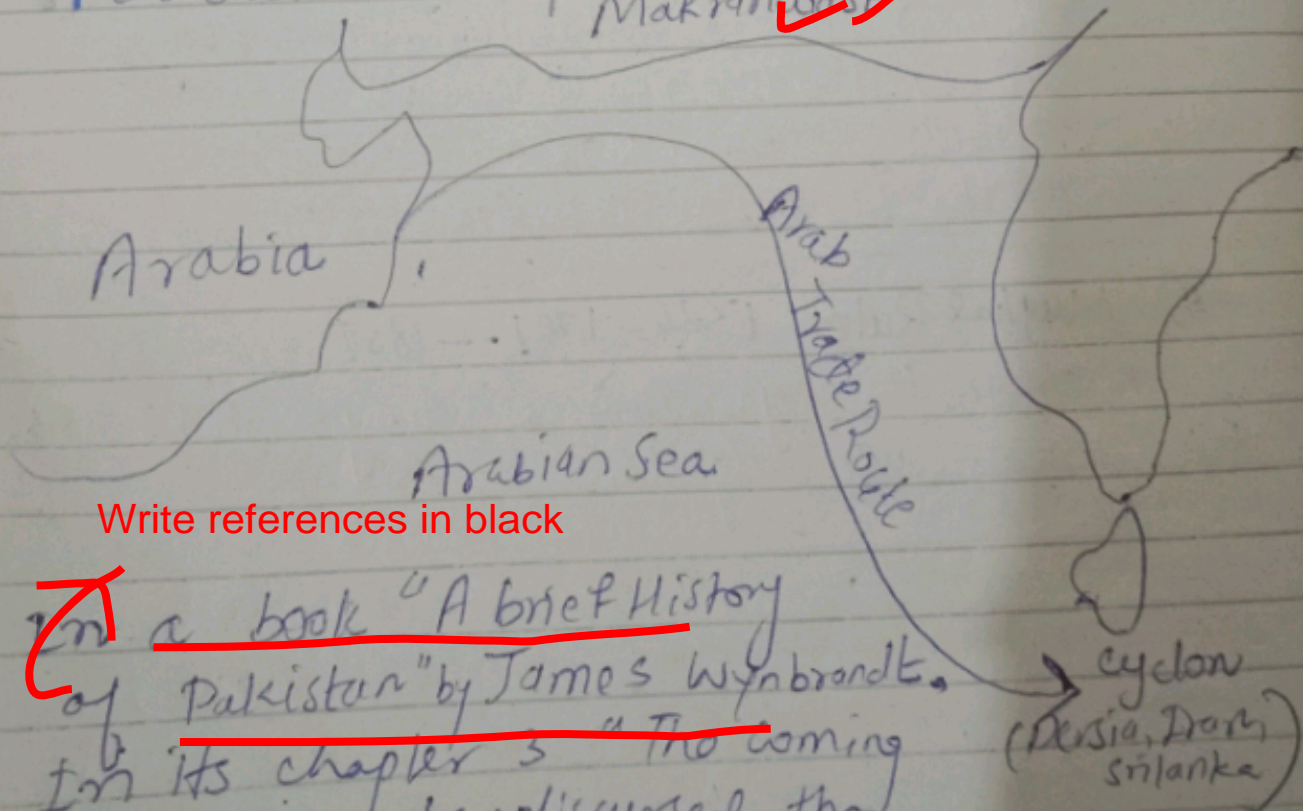 Makran
Arabia
Arab Trade Route
Arabian Sea
Write references in black
In a book "A brief History
of Pakistan" by James Wynbrandt.
In its chapter 3 "The coming
cyclon
(Persia,
srilanka)
the